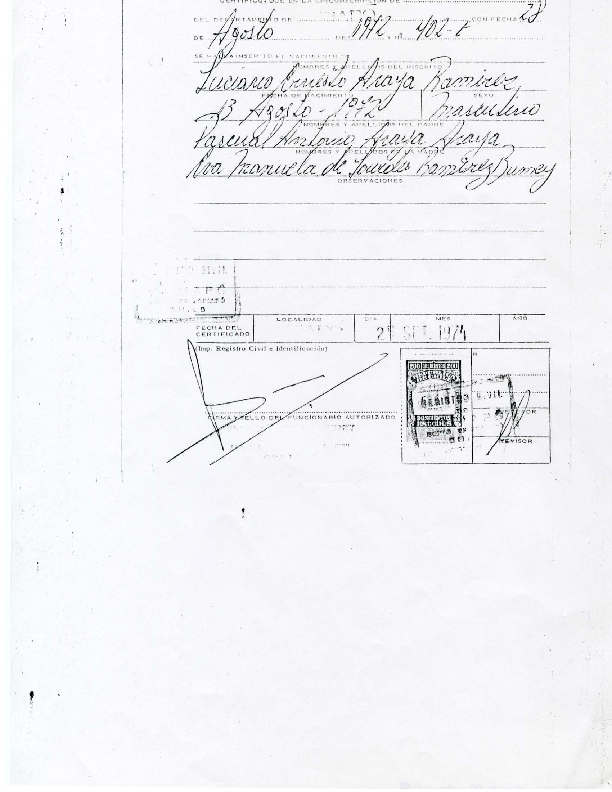 CERTIFICO: QUE EN LA CIRCUNSCRIPCION DE
DEL DEPARTAMENTO DE CON FECHA 28
DE Agosto DE 1972 Y N° 402-E
SE HA INSCRITO EL NACIMIENTO
NOMBRES Y APELLIDOS DEL INSCRITO
Luciano Ernesto Araya Ramirez
FECHA DE NACIMIENTO SEXO
13 Agosto - 1972 Masculino
NOMBRES Y APELLIDOS DEL PADRE
Pascual Antonio Araya Araya
NOMBRES Y APELLIDOS DE LA MADRE
Eva Manuela de Lourdes Ramirez
OBSERVACIONES
LOCALIDAD DIA MES AÑO
FECHA DEL
CERTIFICADO
SET. 1974
(Imp. Registro Civil e Identificación)
FIRMA Y SELLO DEL FUNCIONARIO AUTORIZADO
REVISOR